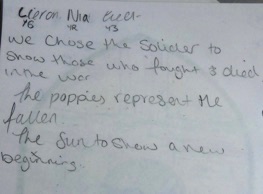 Cieron Nia
YR 43
we chose the Solider to
Show those who fought & died
in the war
The poppies represent the
fallen.
The Sun to show a new
beginning.